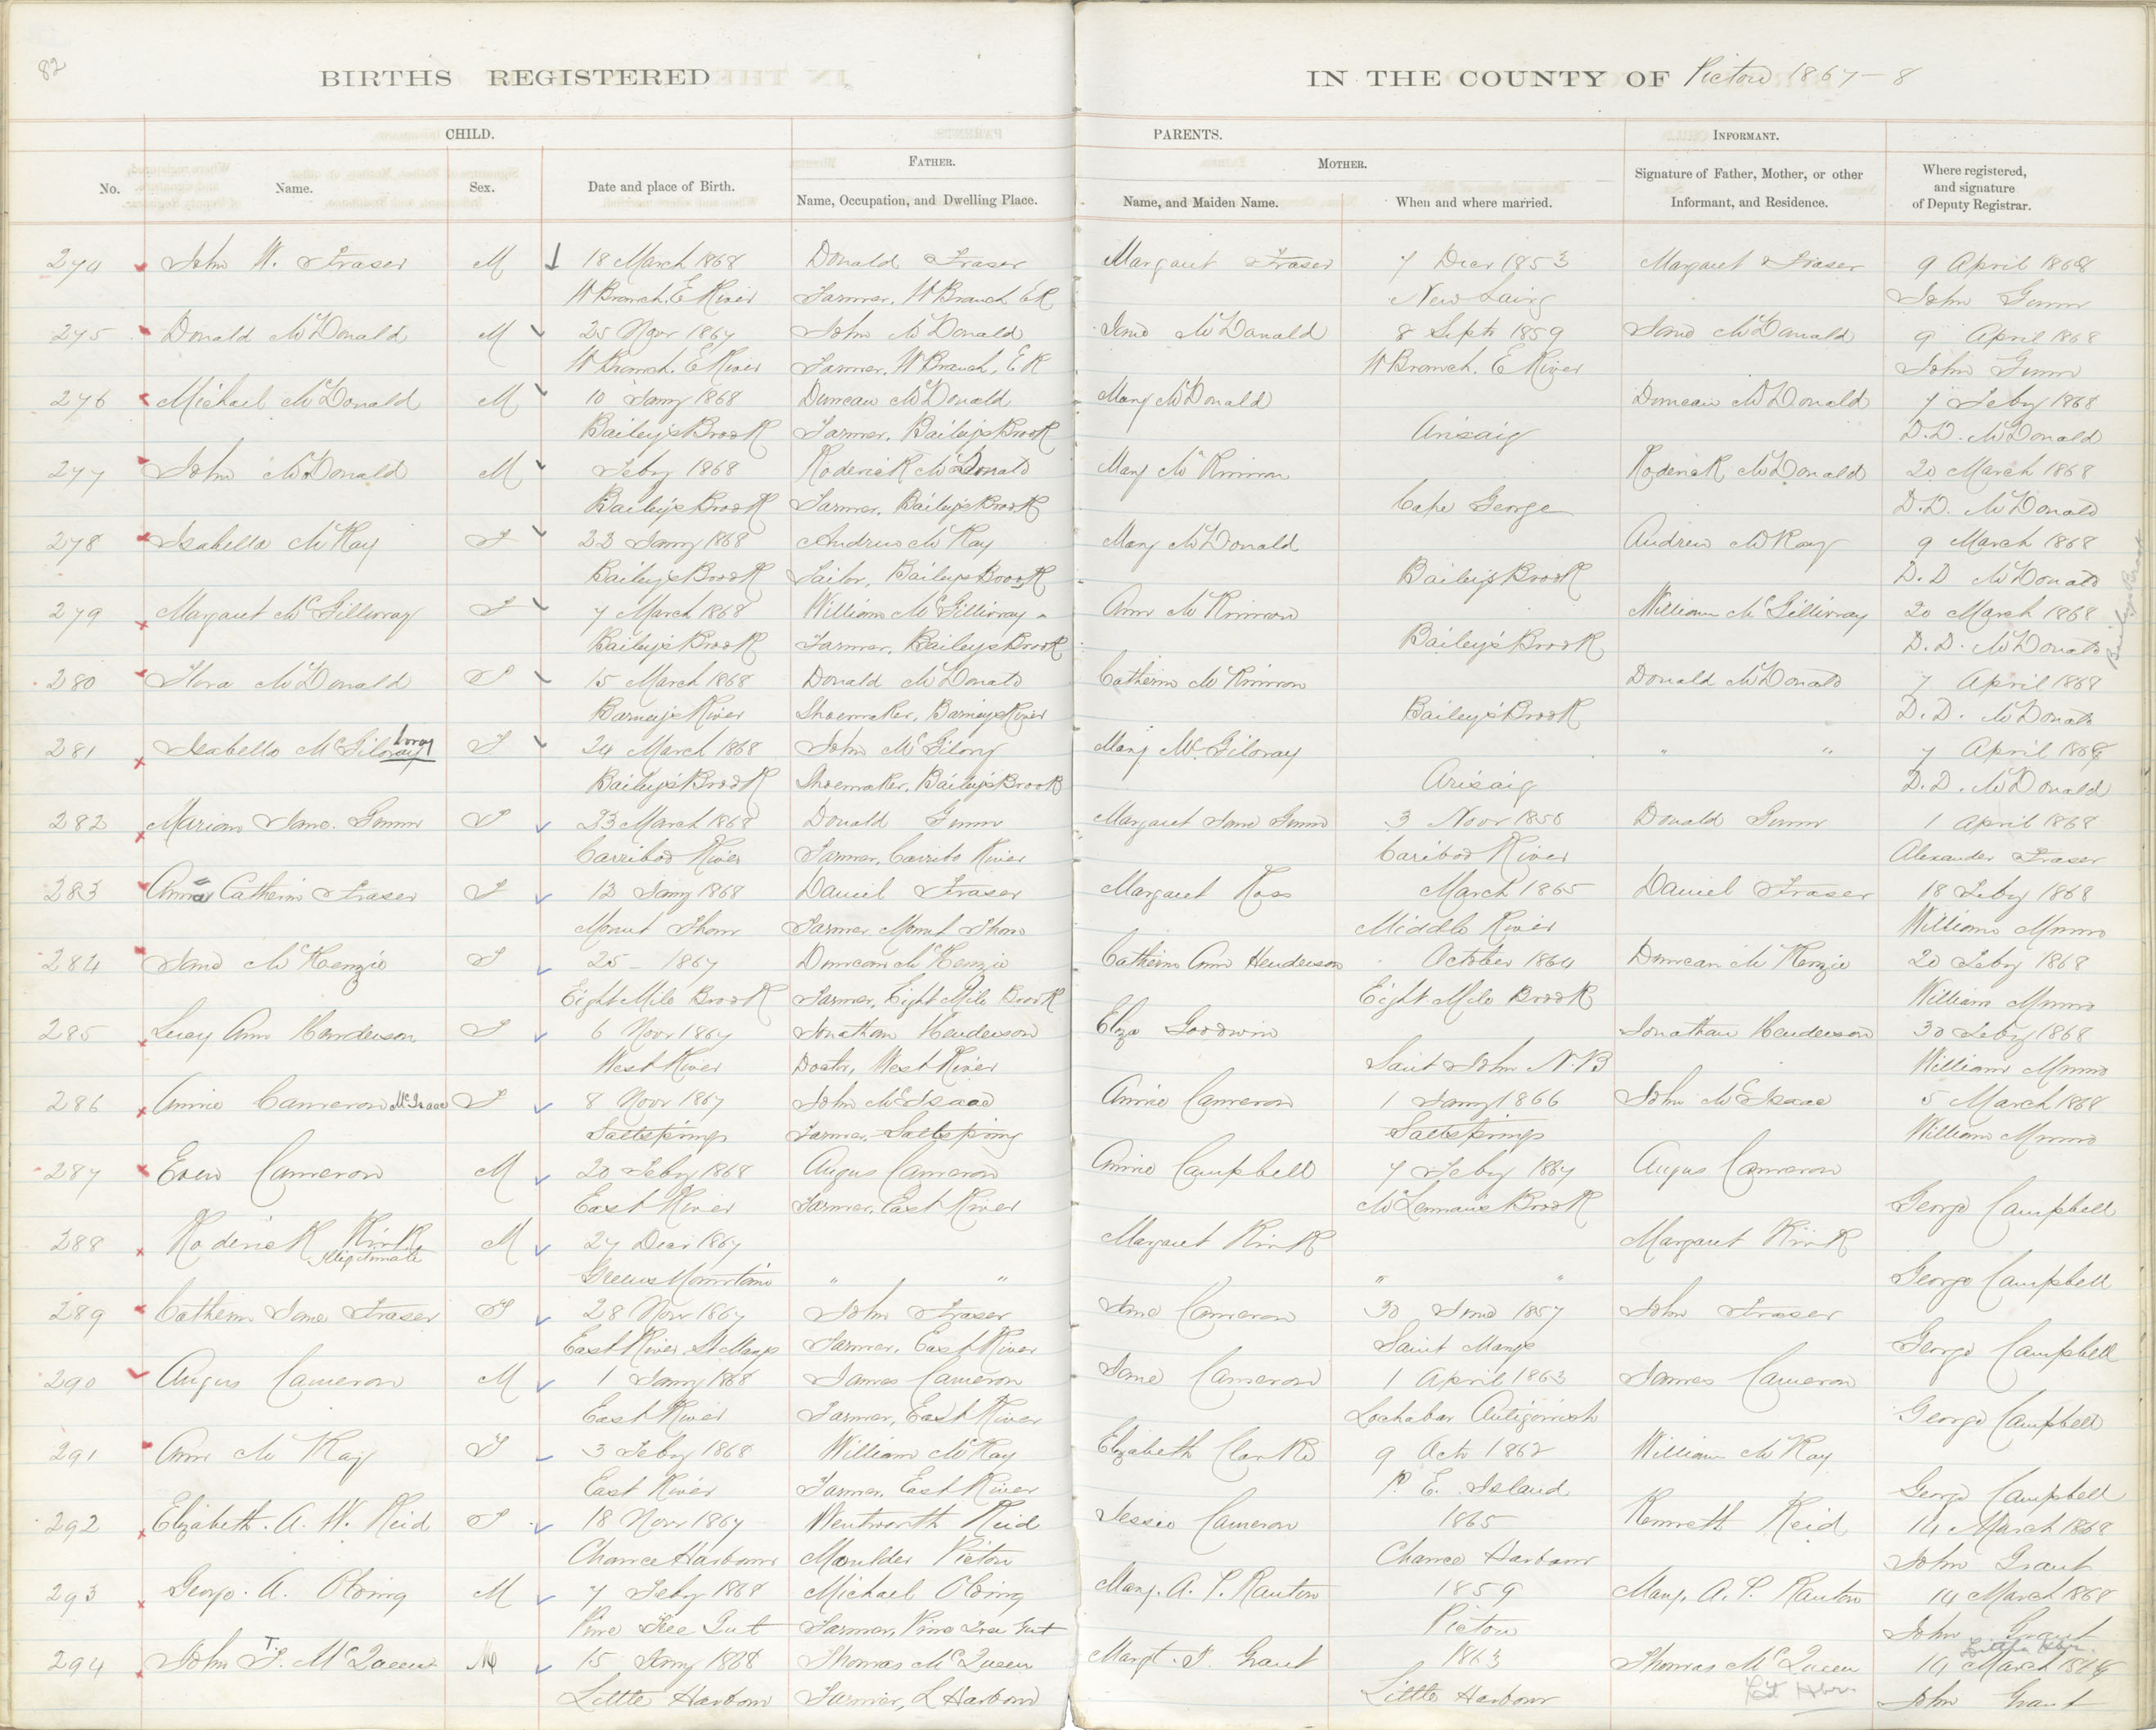 82
BIRTHS REGISTERED IN THE COUNTY OF Pictou 1867-8
CHILD. PARENTS. INFORMANT.
FATHER. MOTHER.
No. Name. Sex. Date and place of Birth. Name, Occupation, and Dwelling Place. Name, and Maiden Name. When and where married. Signature of Father, Mother, or other Informant, and Residence. Where registered, and signature of Deputy Registrar.
274 John W. Fraser M 18 March 1868 Donald Fraser Margaret Fraser 7 Decr 1853 Margaret Fraser 9 April 1868
W Branch, E River Farmer, W Branch ER New Lairg John Gunn
275 Donald McDonald M 25 Novr 1867 John McDonald Jane McDonald 8 Septr 1859 Jane McDonald 9 April 1868
W Branch, E River Farmer, W Branch, E R W Branch, E River John Gunn
276 Michael McDonald M 10 Jany 1868 Duncan McDonald Mary McDonald Duncan McDonald 7 Feby 1868
Bailey's Brook Farmer, Bailey's Brook Arisaig D.D. McDonald
277 John McDonald M Feby 1868 Roderick McDonald Mary McKinnon Roderick McDonald 20 March 1868
Bailey's Brook Farmer, Bailey's Brook Cape George D.D. McDonald
278 Isabella McKay F 22 Jany 1868 Andrew McKay Mary McDonald Andrew McKay 9 March 1868
Bailey's Brook Tailor, Bailey's Brook Bailey's Brook D.D McDonald
279 Margaret McGillivray F 7 March 1868 William McGillivray Ann McKinnon William McGillivray 20 March 1868
Bailey's Brook Farmer, Bailey's Brook Bailey's Brook D.D. McDonald
Bailey's Brook
280 Flora McDonald F 15 March 1868 Donald McDonald Catherine McKinnon Donald McDonald 7 April 1868
Barney's River Shoemaker, Barney's River Bailey's Brook D.D. McDonald
281 Isabella McGiloray F 24 March 1868 John McGilory Mary McGiloray " " 7 April 1868
Bailey's Brook Shoemaker, Bailey's Brook Arisaig D.D. McDonald
282 Marion Jane Gunn F 23 March 1868 Donald Gunn Margaret Jane Gunn 3 Novr 1858 Donald Gunn 1 April 1868
Carriboo River Farmer, Carribo River Cariboo River Alexander Fraser
283 Anna Catherine Fraser F 12 Jany 1868 Daniel Fraser Margaret Ross March 1865 Daniel Fraser 18 Feby 1868
Mount Thom Farmer, Mount Thom Middle River William Munro
284 Jane McKenzie F 25 - 1867 Duncan McKenzie Catherine Ann Henderson October 1864 Duncan McKenzie 20 Feby 1868
Eight Mile Brook Farmer, Eight Mile Brook Eight Mile Brook William Munro
285 Lucy Ann Henderson F 6 Novr 1867 Jonathan Henderson Eliza Goodwin Jonathan Henderson 30 Feby 1868
West River Doctr, West River Saint John N.B William Munro
286 Annie Cameron McIsaac F 8 Novr 1867 John McIsaac Annie Cameron 1 Jany 1866 John McIsaac 5 March 1868
Saltsprings Farmer, Saltspring Saltsprings William Munro
287 Even Cameron M 20 Feby 1868 Angus Cameron Annie Campbell 7 Feby 1867 Angus Cameron
East River Farmer, East River McLennan's Brook George Campbell
288 Roderick Kirk M 27 Decr 1867 Margaret Kirk Margaret Kirk
Illegitimate Greens Mountain " " " " George Campbell
289 Catherine Jane Fraser F 28 Novr 1867 John Fraser Jane Cameron 30 June 1857 John Fraser
East River, St Marys Farmer, East River Saint Marys George Campbell
290 Angus Cameron M 1 Jany 1868 James Cameron Jane Cameron 1 April 1863 James Cameron
East River Farmer, East River Lochabar Antigonish George Campbell
291 Ann McKay F 3 Feby 1868 William McKay Elizabeth Clarke 9 Octr 1862 William McKay
East River Farmer, East River P. E. Island George Campbell
292 Elizabeth. A. W. Reid F 18 Novr 1867 Wentworth Reid Jessie Cameron 1865 Kenneth Reid 14 March 1868
Chance Harbour Moulder Pictou Chance Harbour John Grant
293 George. A. Obing M 7 Feby 1868 Michael Obing Mary. A. P. Rauton 1859 Mary. A. P. Rauton 14 March 1868
Pine Tree Gut Farmer, Pine Tree Gut Pictou John Grant
294 John T. McQueen M 15 Jany 1868 Thomas McQueen Margt. J. Grant 1863 Thomas McQueen 14 March 1868
Little Harbour Farmer, L Harbour Little Harbour Lit Hbr. John Grant